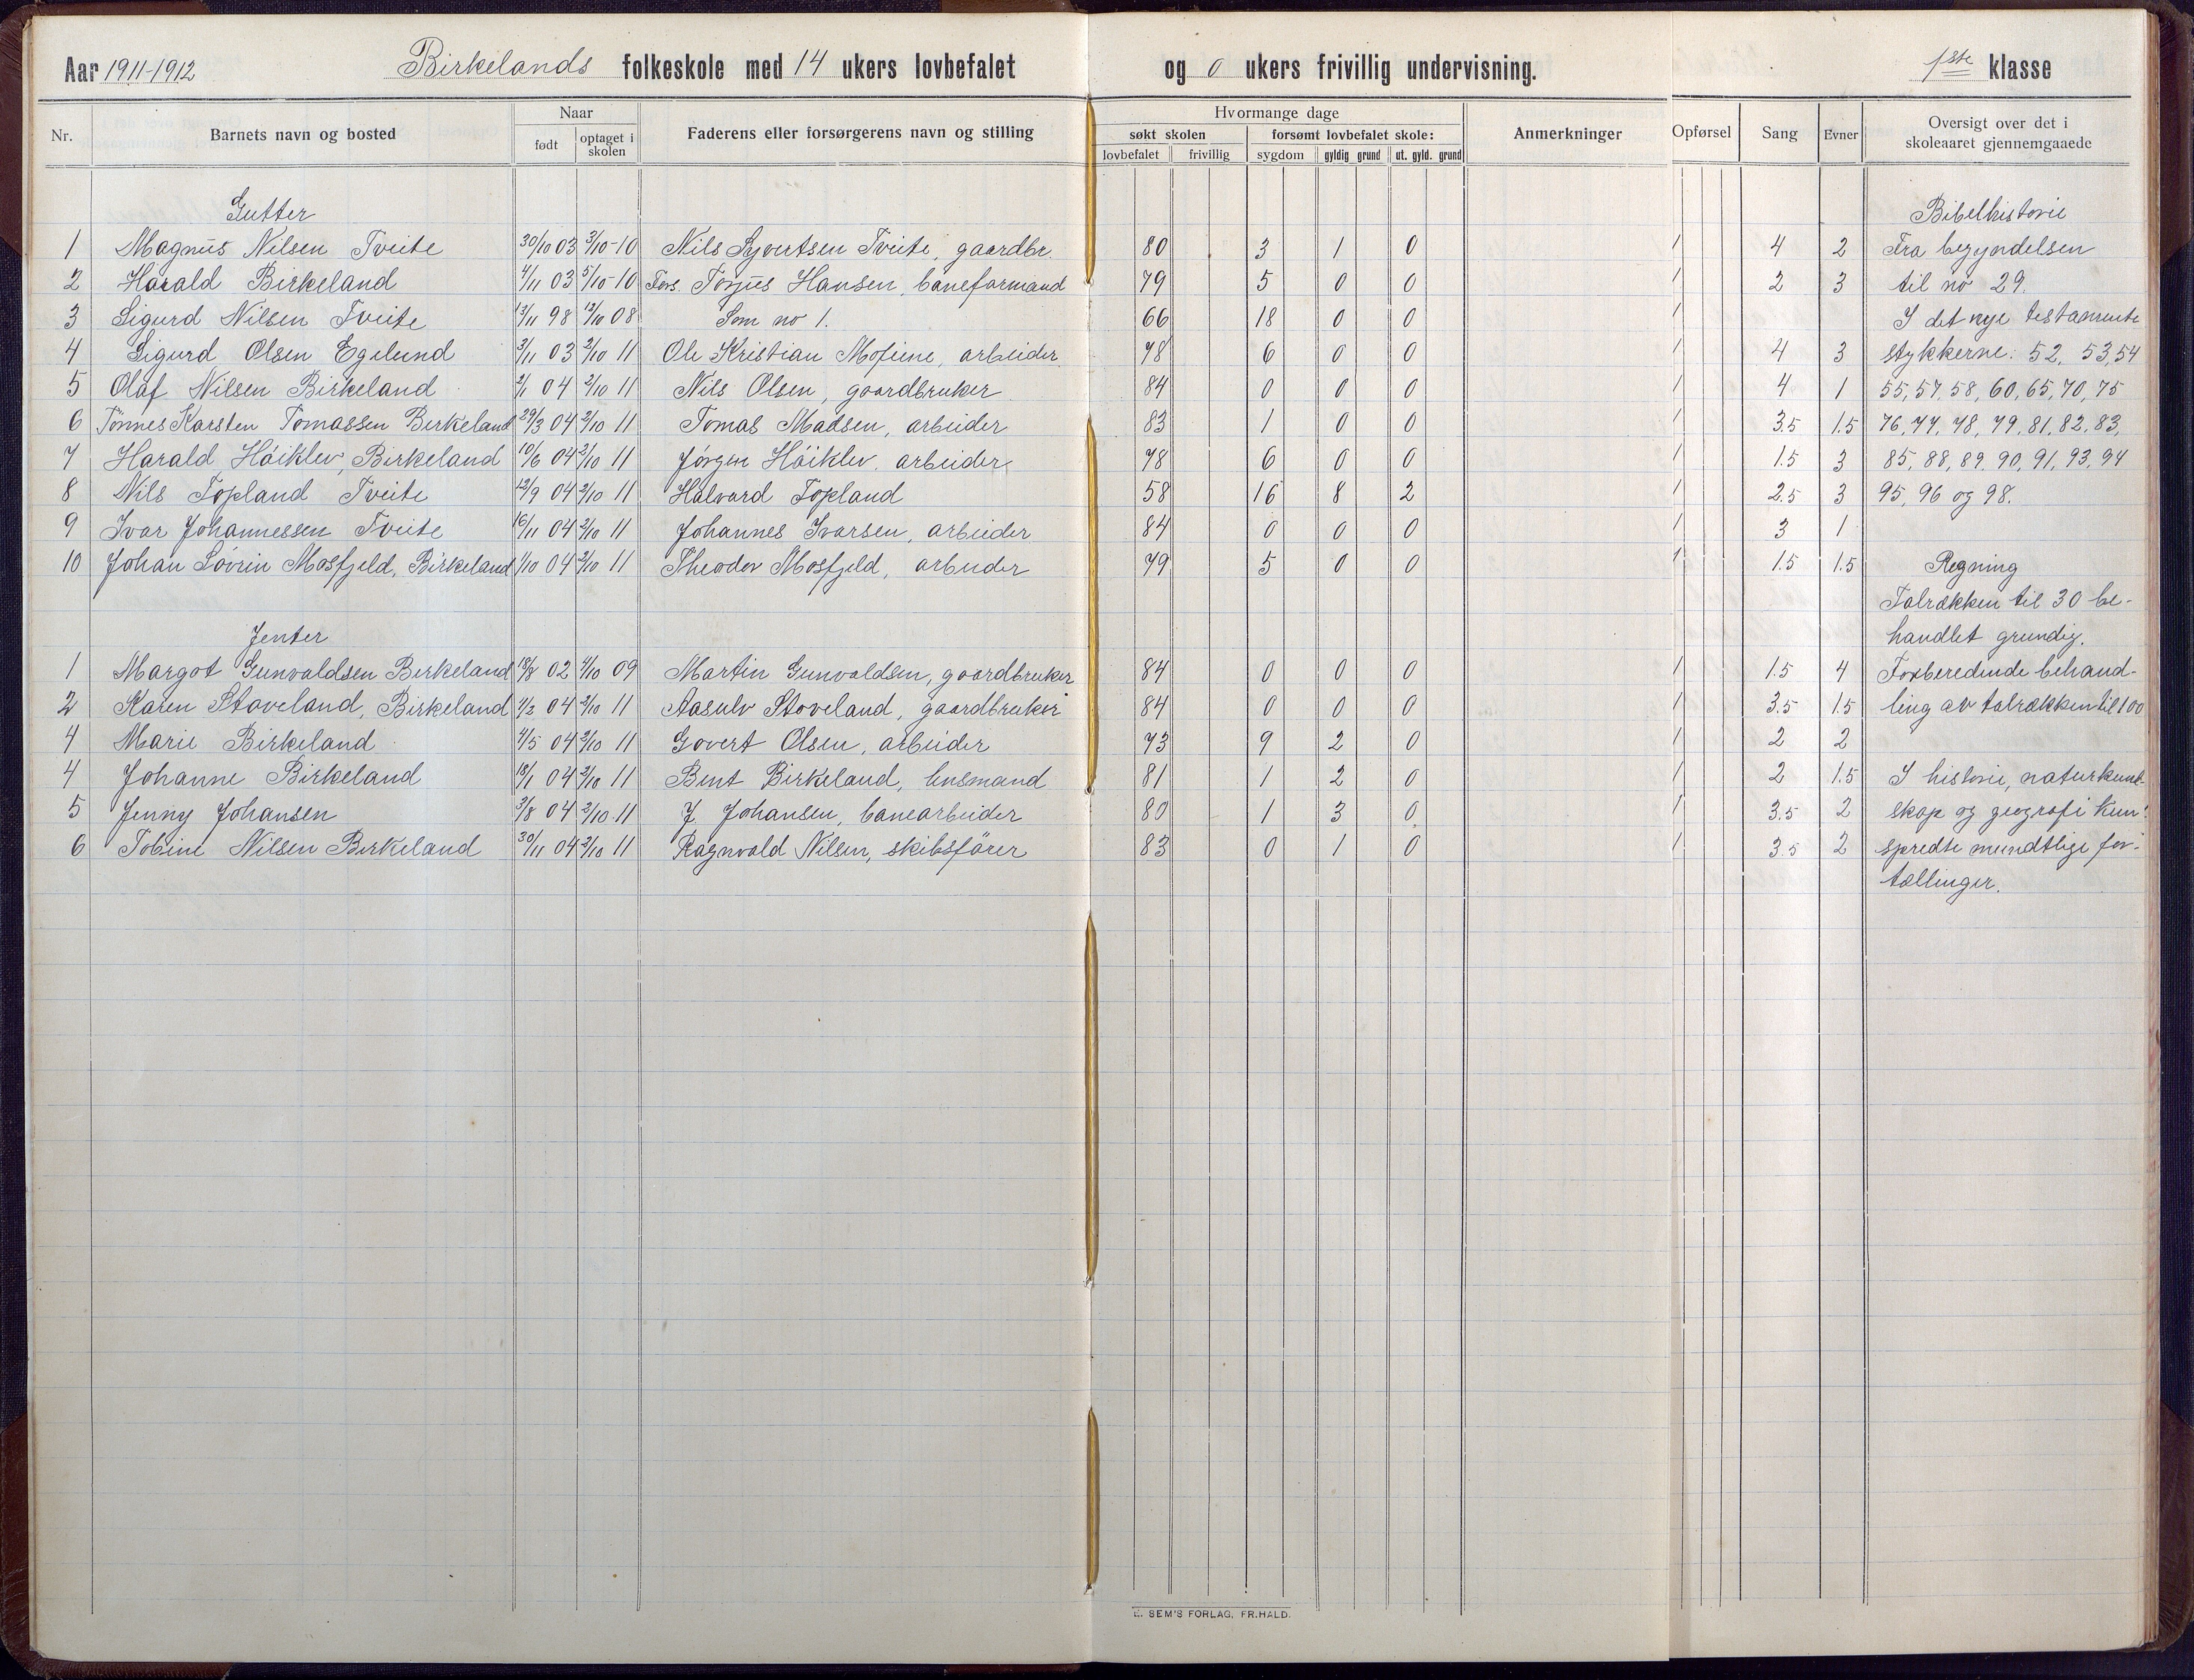 Aar 1911-1912 Birkelands folkeskole med 14 ukers lovbefalet og 0 ukers frivillig undervisning. 1ste klasse
Nr. Barnets navn og bosted Naar Faderens eller forsørgerens navn og stilling Hvormange dage Anmerkninger Opførsel Sang Evner Oversigt over det i skoleaaret gjennemgaaede
født optaget i skolen søkt skolen forsømt lovbefalet skole:
lovbefalet frivillig sygdom gyldig grund ut. gyld. grund
Gutter Bibelhistorie
1 Magnus Nilsen Tveite 30/10 03 3/10-10 Nils Syvertsen Tveite, gaardbr. 80 3 1 0 1 4 2 Fra begyndelsen
2 Harald Birkeland 4/11 03 5/10-10 Fors. Torjus Hansen, baneformand 79 5 0 0 1 2 3 til no 29.
3 Sigurd Nilsen Tveite 13/11 98 12/10 08 Som no 1. 66 18 0 0 1 I det nye testamente
4 Sigurd Olsen Egelund 3/11 03 2/10 11 Ole Kristian arbeider 78 6 0 0 1 4 3 stykkerne: 52, 53, 54
5 Olaf Nilsen Birkeland 2/1 04 2/10 11 Nils Olsen, gaardbruker 84 0 0 0 1 4 1 55, 57, 58, 60, 65, 70, 75
6 Tönnes Karsten Tomassen Birkeland 29/3 04 2/10 11 Tomas Madsen, arbeider 83 1 0 0 1 3.5 1.5 76, 77, 78, 79, 81, 82, 83,
7 Harald Höiklev, Birkeland 10/6 04 2/10 11 Jörgen Höiklev, arbeider 78 6 0 0 1 1.5 3 85, 88, 89, 90, 91, 93, 94
8 Nils Topland Tveite 12/9 04 2/10 11 Halvard Topland 58 16 8 2 1 2.5 3 95, 96 og 98.
9 Ivar Johannessen Tveite 16/11 04 2/10 11 Johannes Ivarsen, arbeider 84 0 0 0 1 3 1
10 Johan Sörin Mosfjeld, Birkeland 1/10 04 2/10 11 Theodor Mosfjeld, arbeider 79 5 0 0 1 1.5 1.5 Regning
Talrækken til 30 be-
Jenter handlet grundig.
1 Margot Gunvaldsen Birkeland 18/8 02 4/10 09 Martin Gunvaldsen, gaardbruker 84 0 0 0 1 1.5 4 Forberedende behand-
2 Karen Stoveland, Birkeland 04 2/10 11 Aasulv Stoveland, gaardbruker 84 0 0 0 1 3.5 1.5 ling av talrækken til 100
4 Marie Birkeland 4/5 04 2/10 11 Govert Olsen, arbeider 73 9 2 0 1 2 2
4 Johanne Birkeland 18/1 04 2/10 11 Bent Birkeland, lensmand 81 1 2 0 1 2 1.5 I historie, naturkund-
5 Jenny Johansen 3/8 04 2/10 11 J. Johansen, banearbeider 80 1 3 0 1 3.5 2 skap og geografi kun
6 Tobine Nilsen Birkeland 30/11 04 2/10 11 Ragnvald Nilsen, skibsförer 83 0 1 0 1 3.5 2 spredte mundtlige for-
tællinger.
E. SEM'S FORLAG, FR.HALD.